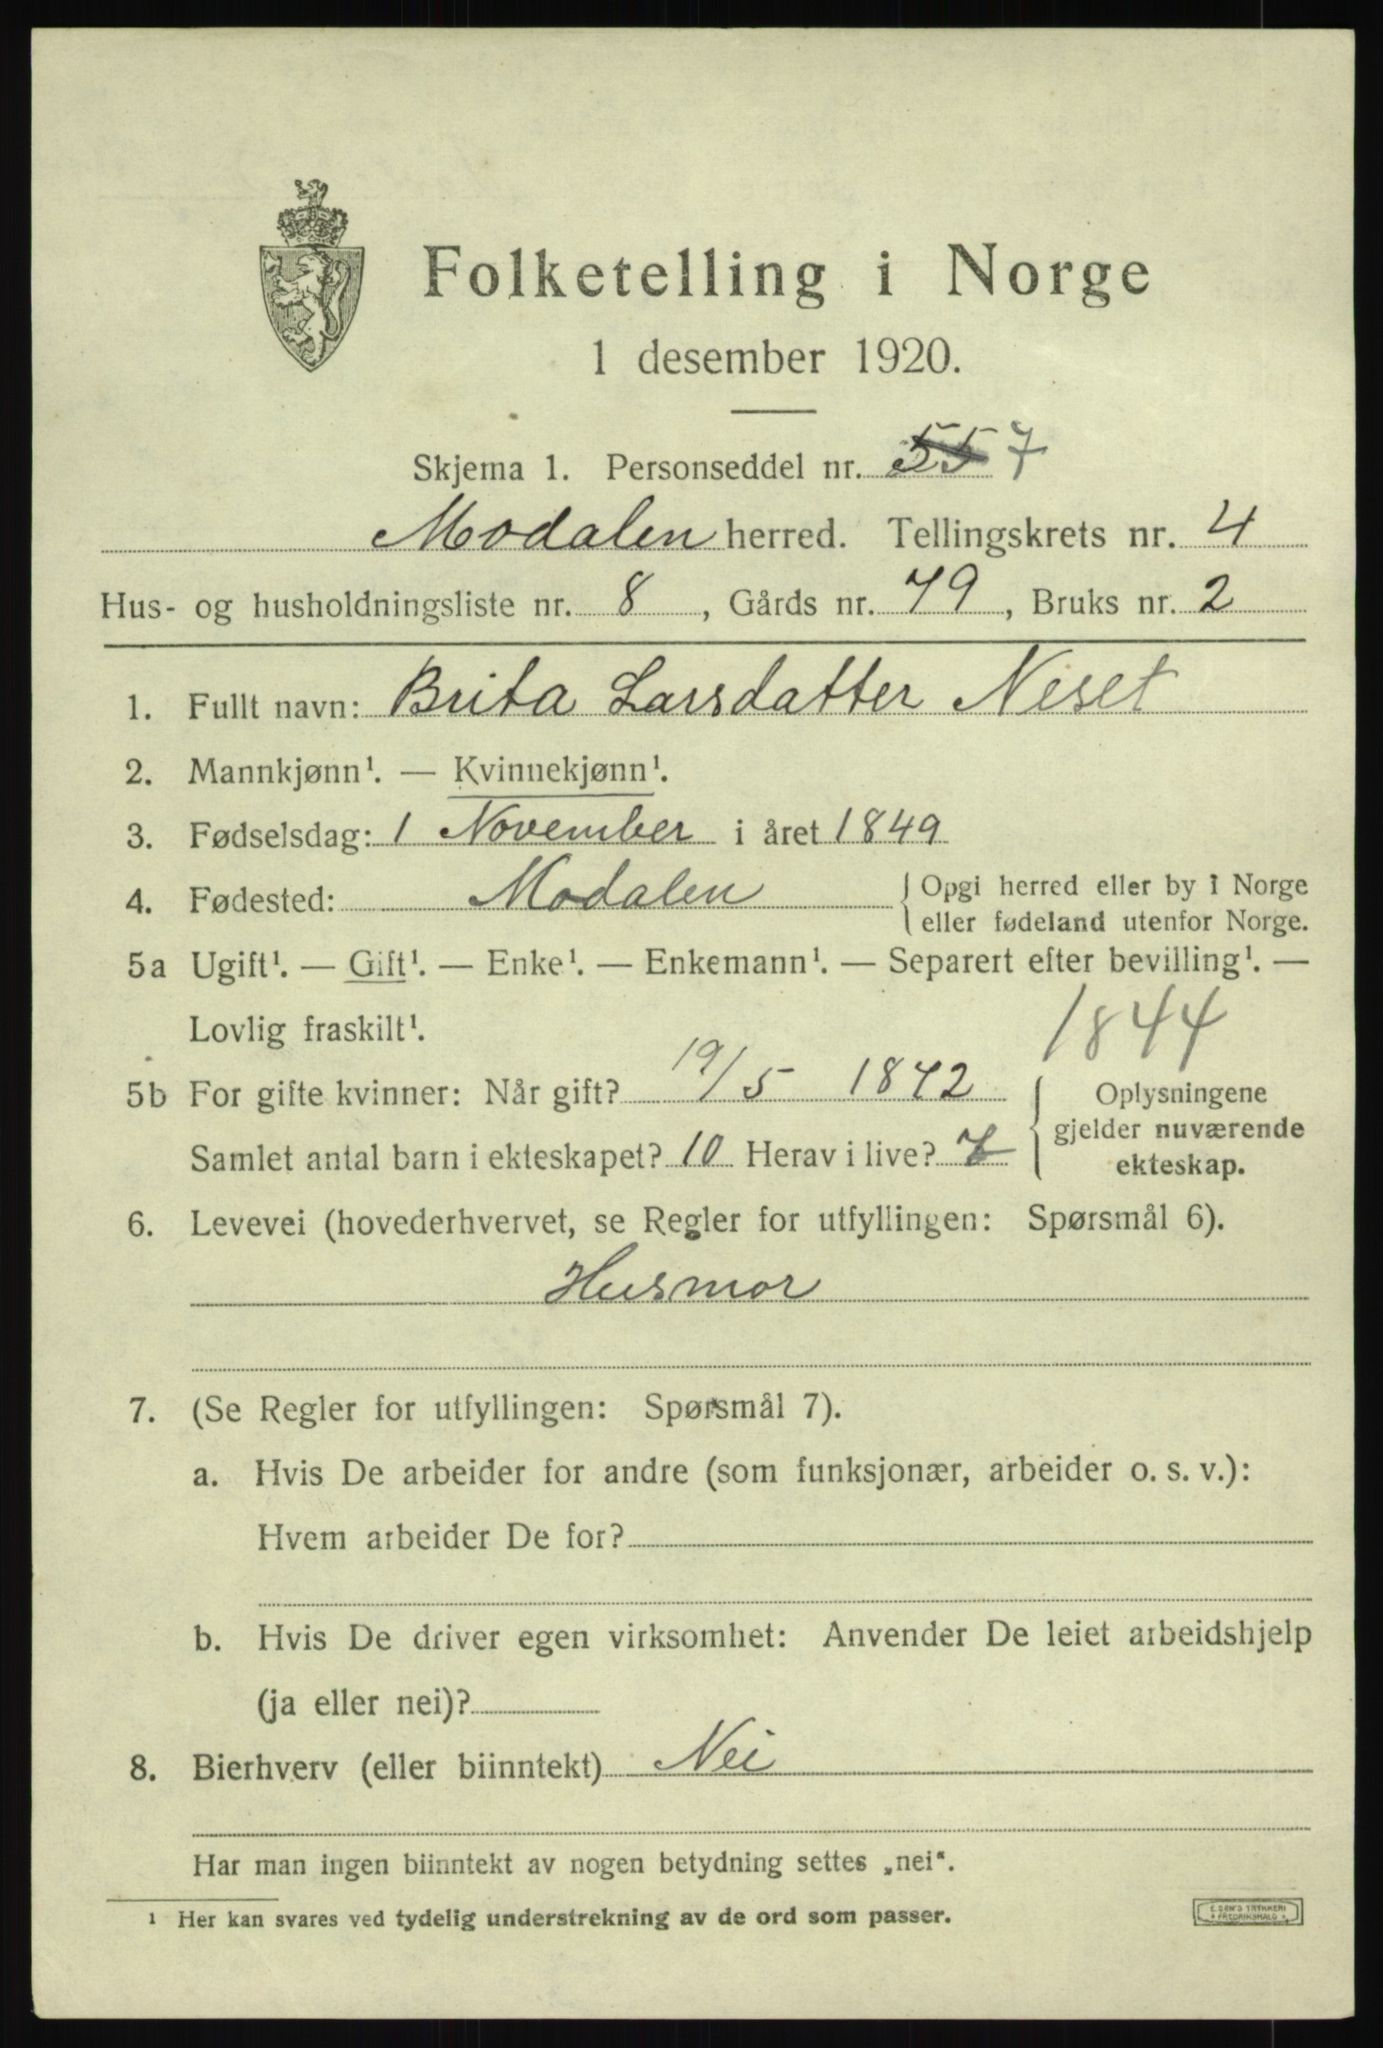 Folketelling i Norge
1 desember 1920.
Skjema 1. Personseddel nr. 55 7
Modalen herred. Tellingskrets nr. 4
Hus- og husholdningsliste nr. 8, Gårds nr. 79, Bruks nr. 2
1. Fullt navn: Brita Larsdatter Neset
2. Mannkjønn¹. — Kvinnekjønn¹.
3. Fødselsdag: 1 November i året 1849
4. Fødested: Modalen { Opgi herred eller by i Norge
eller fødeland utenfor Norge.
5a Ugift¹. — Gift¹. — Enke¹. — Enkemann¹. — Separert efter bevilling¹. —
Lovlig fraskilt¹.
1844
5b For gifte kvinner: Når gift? 19/5 1872 { Oplysningene
gjelder nuværende
ekteskap.
Samlet antal barn i ekteskapet? 10 Herav i live? 7
6. Levevei (hovederhvervet, se Regler for utfyllingen: Spørsmål 6).
Husmor
7. (Se Regler for utfyllingen: Spørsmål 7).
a. Hvis De arbeider for andre (som funksjonær, arbeider o. s. v.):
Hvem arbeider De for?
b. Hvis De driver egen virksomhet: Anvender De leiet arbeidshjelp
(ja eller nei)?
8. Bierhverv (eller biinntekt) Nei
Har man ingen biinntekt av nogen betydning settes „nei“.
¹ Her kan svares ved tydelig understrekning av de ord som passer.